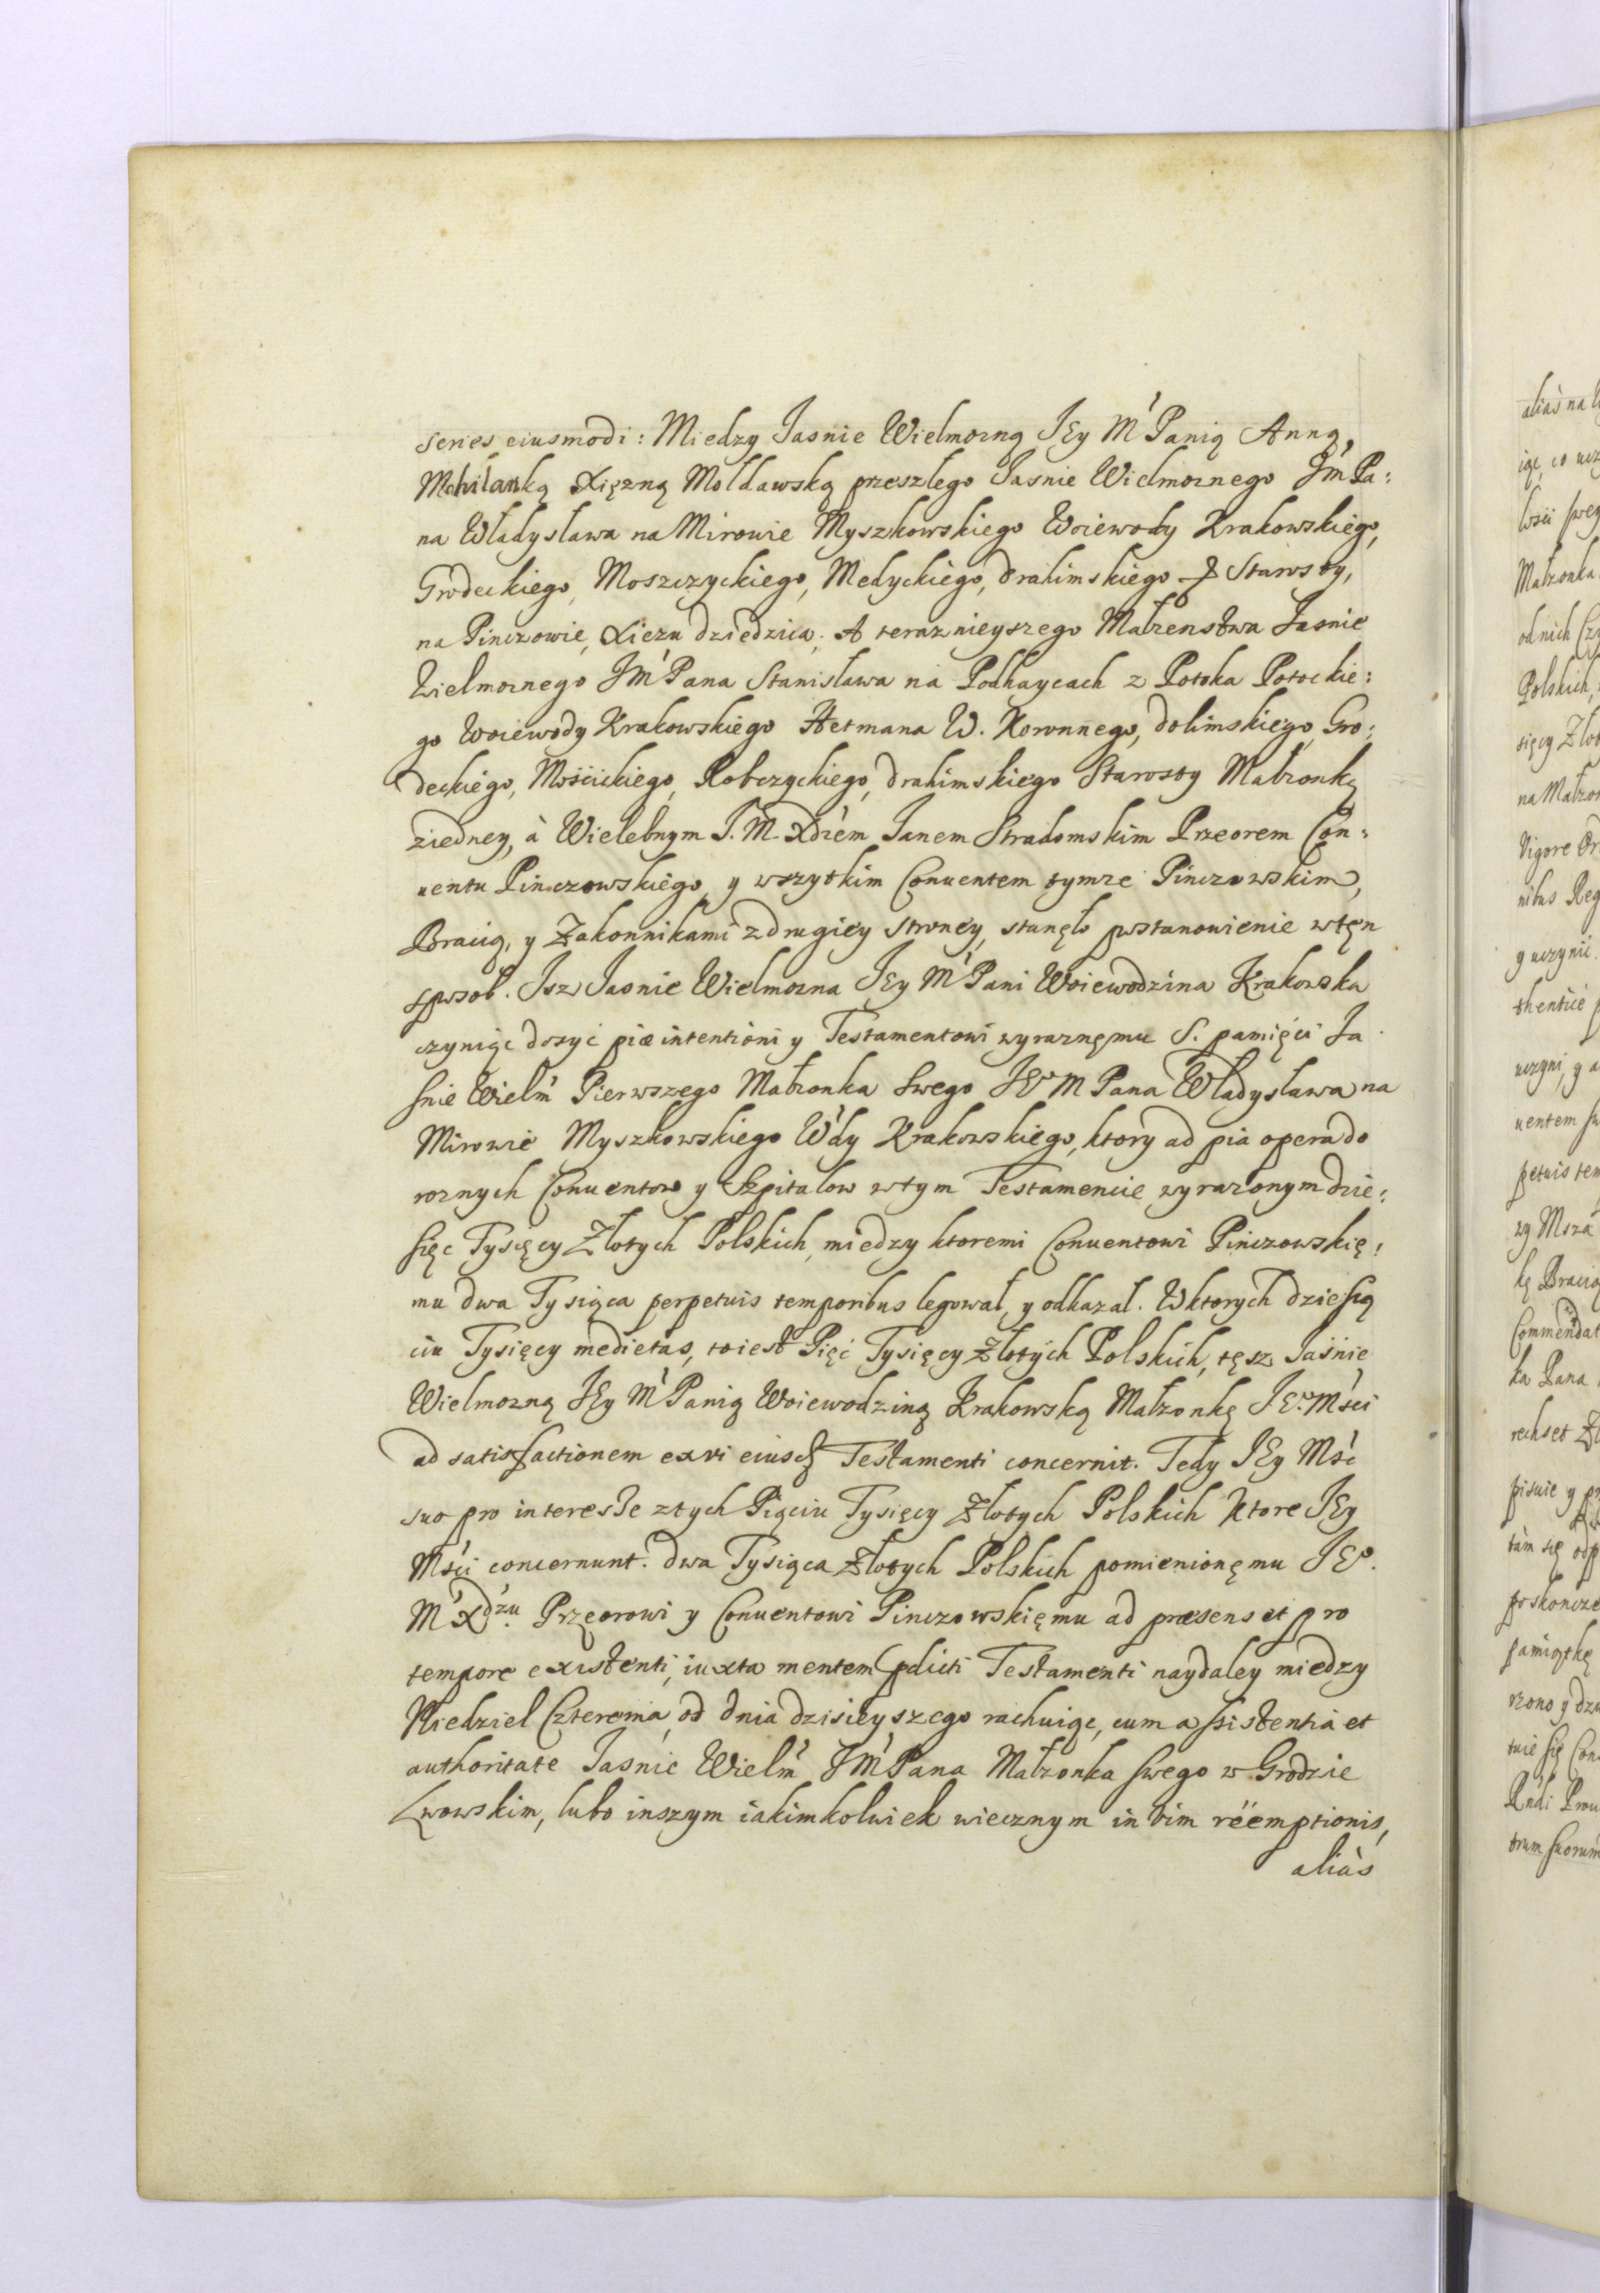 series eiusmodi: Miedzy Jasnie Wielmozną JEy M Panią Anną
Mohilanką Xiężną Mołdawską przeszłego Jasnie Wielmoznego JM Pa:
na Władysława na Mirowie Myszkowskiego Woiewody Krakowskiego,
Grodeckiego, Moszczyckiego, Medyckiego, drahimskiego & Starosty,
na Pinczowie, Xiezu dziedzica. A teraznieyszego Małzenstwa Jasnie
Wielmoznego JM Pana Stanisława na Podhaycach z Potoka Potockie:
go Woiewody Krakowskiego Hetmana W. Koronnego, dolimskiego, Gro:
deckiego, Mościckiego, Robczyckiego, drahimskiego Starosty Małzonką
ziedney, à Wielebnym J. M. Xdzem Janem Stradomskim Przeorem Con:
uentu Pinczowskiego, y wszytkim Conuentem tymze Pinczowskim,
Bracią, y Zakonnikami z drugiey strony, stanęło postanowienie w tęn
sposob. Jsz Jasnie Wielmozna JEy M Pani Woiewodzina Krakowska
czyniąc dosyć piæ intentioni y Testamentowi wyraznęmu S. pamięci Ja
śnie Wielm Pierwszego Małzonka swego JEo M Pana Władysława na
Mirowie Myszkowskiego Wdy Krakowskiego, ktory ad pia opera do
roznych Conuentow y Szpitalow w tym Testamencie wyrazonym dzie:
sięc Tysięcy Złotych Polskich, miedzy ktoremi Conuentowi Pinczowskię:
mu dwa Tysiąca perpetuis temporibus legował, y odkazał. W ktorych dziesią
ciu Tysięcy medietas, to iest Pięć Tysięcy złotych Polskich, tęsz Jaśnie
Wielmozną JEy M Panią Woiewodziną Krakowską Małzonkę JEo Mści
ad satisfactionem ex vi eiusd Testamenti concernit. Tedy JEy Mść
suo pro interesse z tych Pięciu Tysięcy Złotych Polskich ktore JEy
Mści concernunt. dwa Tysiąca złotych Polskich pomienionęmu JEo.
M Xdzu Przęorowi y Conuentowi Pinczowskięmu ad præsens et pro
tempore existenti, iuxta mentem pdicti Testamenti naydaley miedzy
Niedziel Czterema, od dnia dzisieyszego rachuiąc, cum assistentia et
authoritate Jaśnie Wielm JM Pana Małzonka swego w Grodzie
Lwowskim, lubo inszym iakimkolwiek wiecznym in vim rëemptionis,
aliàs